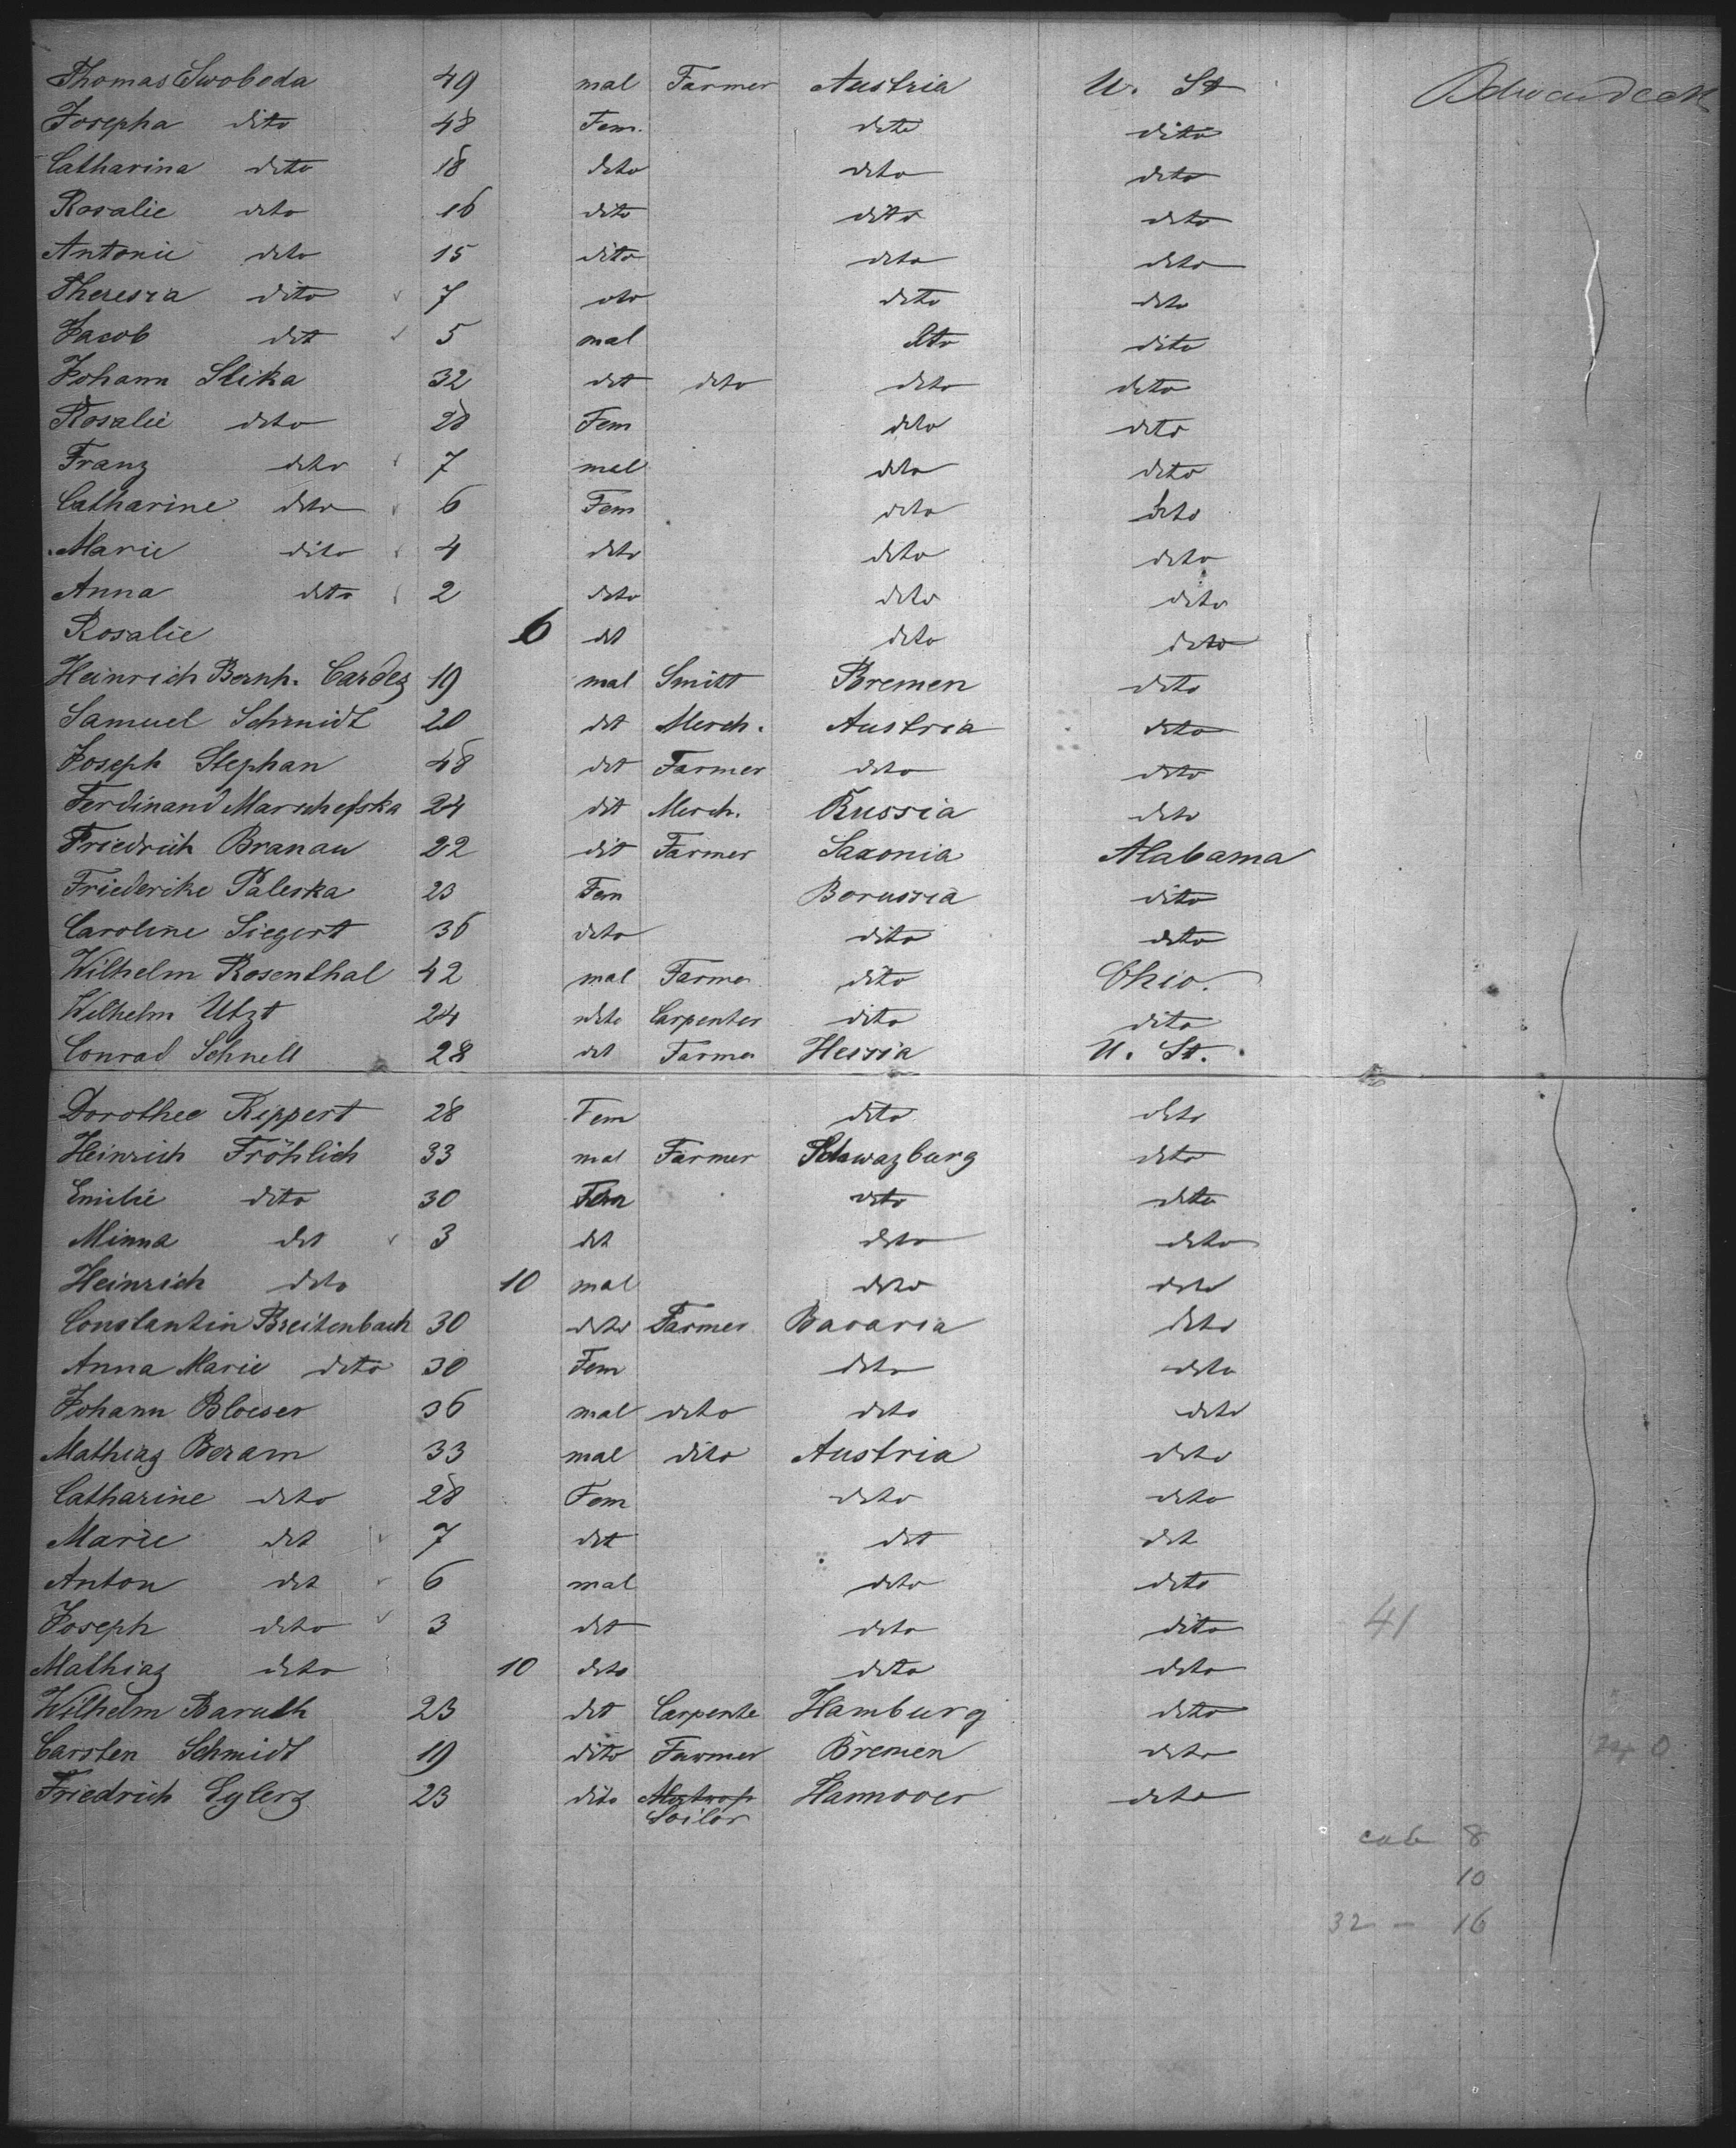 Thomas Swoboda 49 mal Farmer Austria U. St
Josepha dito 48 Fem. dito dito
Catharina dito 18 dito dito dito
Rosalie dito 16 dito dito dito
Antonie dito 15 dito dito dito
Theresia dito 7 dito dito
Jacob dit 5 mal dito dito
Johann Slika 32 dit dito dito dito
Rosalie dito 28 Fem dito dito
Franz dito 7 mal dito dito
Catharine dito 6 Fem dito dito
Marie dito 4 dito dito dito
Anna dito 2 dito dito dito
Rosalie 6 dit dito dito
Heinrich Bernh. Cardes 19 mal Smitt Bremen dito
Samuel Schmidt 20 dit Merch. Austria dito
Joseph Stephan 48 dit Farmer dito dito
Ferdinand Marschefska 24 dit Merch. Russia dito
Friedrich Branau 22 dit Farmer Saxonia Alabama
Friederike Paleska 23 Fem Borussia dito
Caroline Siegert 36 dito dito dito
Wilhelm Rosenthal 42 mal Farmer dito Ohio.
Wilhelm Utzt 24 dito Carpenter dito dito
Conrad Schnell 28 dit Farmer Hessia U. St.
Dorothee Rippert 28 Fem dito dito
Heinrich Fröhlich 33 mal Farmer Schwazburg dito
Emilie dito 30 Fem dito dito
Minna dit 3 dit dito dito
Heinrich dito 10 mal dito dito
Constantin Breitenbach 30 dito Farmer Bavaria dito
Anna Marie dito 30 Fem dito dito
Johann Bloeser 36 mal dito dito dito
Mathias Beram 33 mal dito Austria dito
Catharine dito 28 Fem dito dito
Marie dit 7 dit dit dit
Anton dit 6 mal dito dito
Joseph dito 3 dit dito dito 41
Mathias dito 10 dito dito dito
Wilhelm Baruth 23 dit Carpente Hamburg dito
Carsten Schmidt 19 dito Farmer Bremen dito
Friedrich Eylers 23 dito Hannover dito
Soilor
cab 8
10
32 - 16